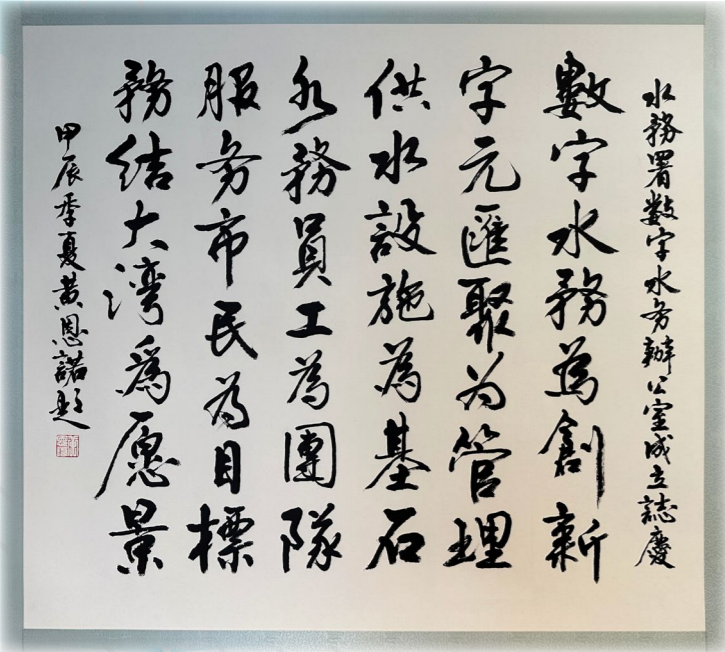 水務署數字水务辦公室成立誌慶
數字水務為創新
字元匯聚为管理
供水設施為基石
水務員工為團隊
服务市民為目標
務结大湾為愿景
甲辰季夏黄恩諾題